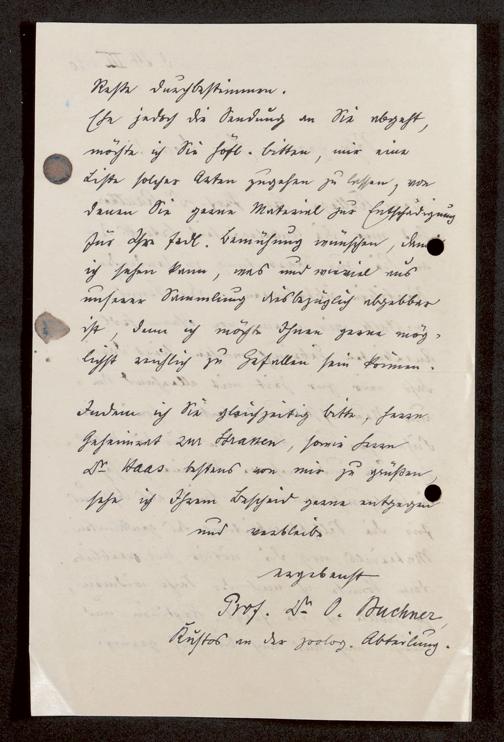 Reste durchbestimmen.
Ehe jedoch die Sendung an Sie abgeht,
möchte ich Sie höfl. bitten, mir eine
Liste solcher Arten zugehen zu lassen, von
denen Sie gerne Material zur Entschädigung
für Ihre frdl. Bemühung wünschen, damit
ich sehen kann, was und wieviel aus
unserer Sammlung diesbezüglich abgebbar
ist, denn ich möchte Ihnen gerne mög-
lichst reichlich zu Gefallen sein können.
Indem ich Sie gleichzeitig bitte, Herrn
Geheimrat zur Strassen, sowie Herrn
Dr. Haas bestens von mir zu grüßen,
sehe ich Ihrem Bescheid gerne entgegen
und verbleibe
ergebenst
Prof. Dr. O. Buchner,
Kustos an der zoolog. Abteilung.